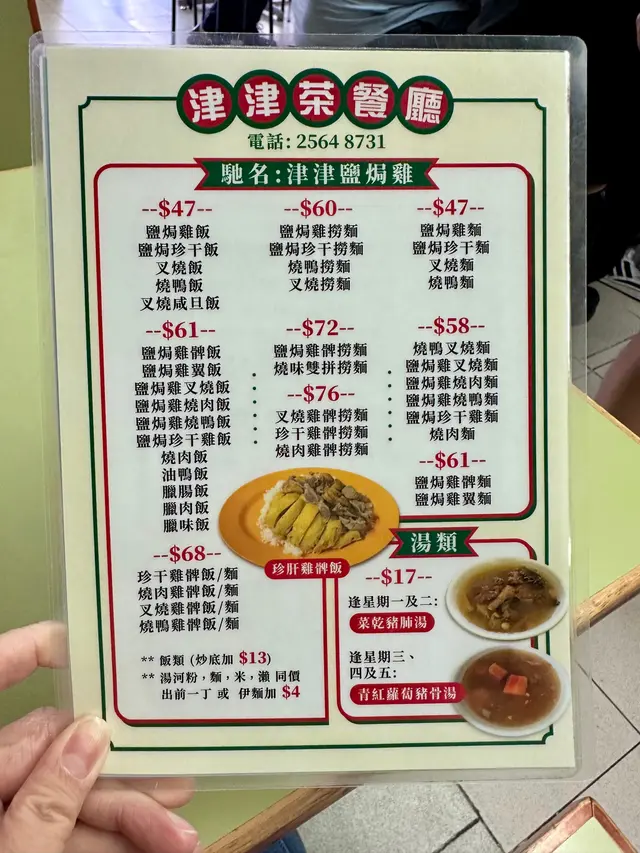 津津茶餐廳
電話: 2564 8731
馳名:津津鹽焗雞
--$47--
鹽焗雞飯
鹽焗珍干飯
叉燒飯
燒鴨飯
叉燒咸旦飯
--$61--
鹽焗雞髀飯
鹽焗雞翼飯
鹽焗雞叉燒飯
鹽焗雞燒肉飯
鹽焗雞燒鴨飯
鹽焗珍干雞飯
燒肉飯
油鴨飯
臘腸飯
臘肉飯
臘味飯
--$68--
珍干雞髀飯/麵
燒肉雞髀飯/麵
叉燒雞髀飯/麵
燒鴨雞髀飯/麵
** 飯類 (炒底加 $13)
** 湯河粉，麵，米，瀨 同價
出前一丁 或 伊麵加 $4
--$60--
鹽焗雞撈麵
鹽焗珍干撈麵
燒鴨撈麵
叉燒撈麵
--$72--
鹽焗雞髀撈麵
燒味雙拼撈麵
--$76--
叉燒雞髀撈麵
珍干雞髀撈麵
燒肉雞髀撈麵
珍肝雞髀飯
--$47--
鹽焗雞麵
鹽焗珍干麵
叉燒麵
燒鴨麵
--$58--
燒鴨叉燒麵
鹽焗雞叉燒麵
鹽焗雞燒肉麵
鹽焗雞燒鴨麵
鹽焗珍干雞麵
燒肉麵
--$61--
鹽焗雞髀麵
鹽焗雞翼麵
湯類
--$17--
逢星期一及二:
菜乾豬肺湯
逢星期三、
四及五:
青紅蘿蔔豬骨湯